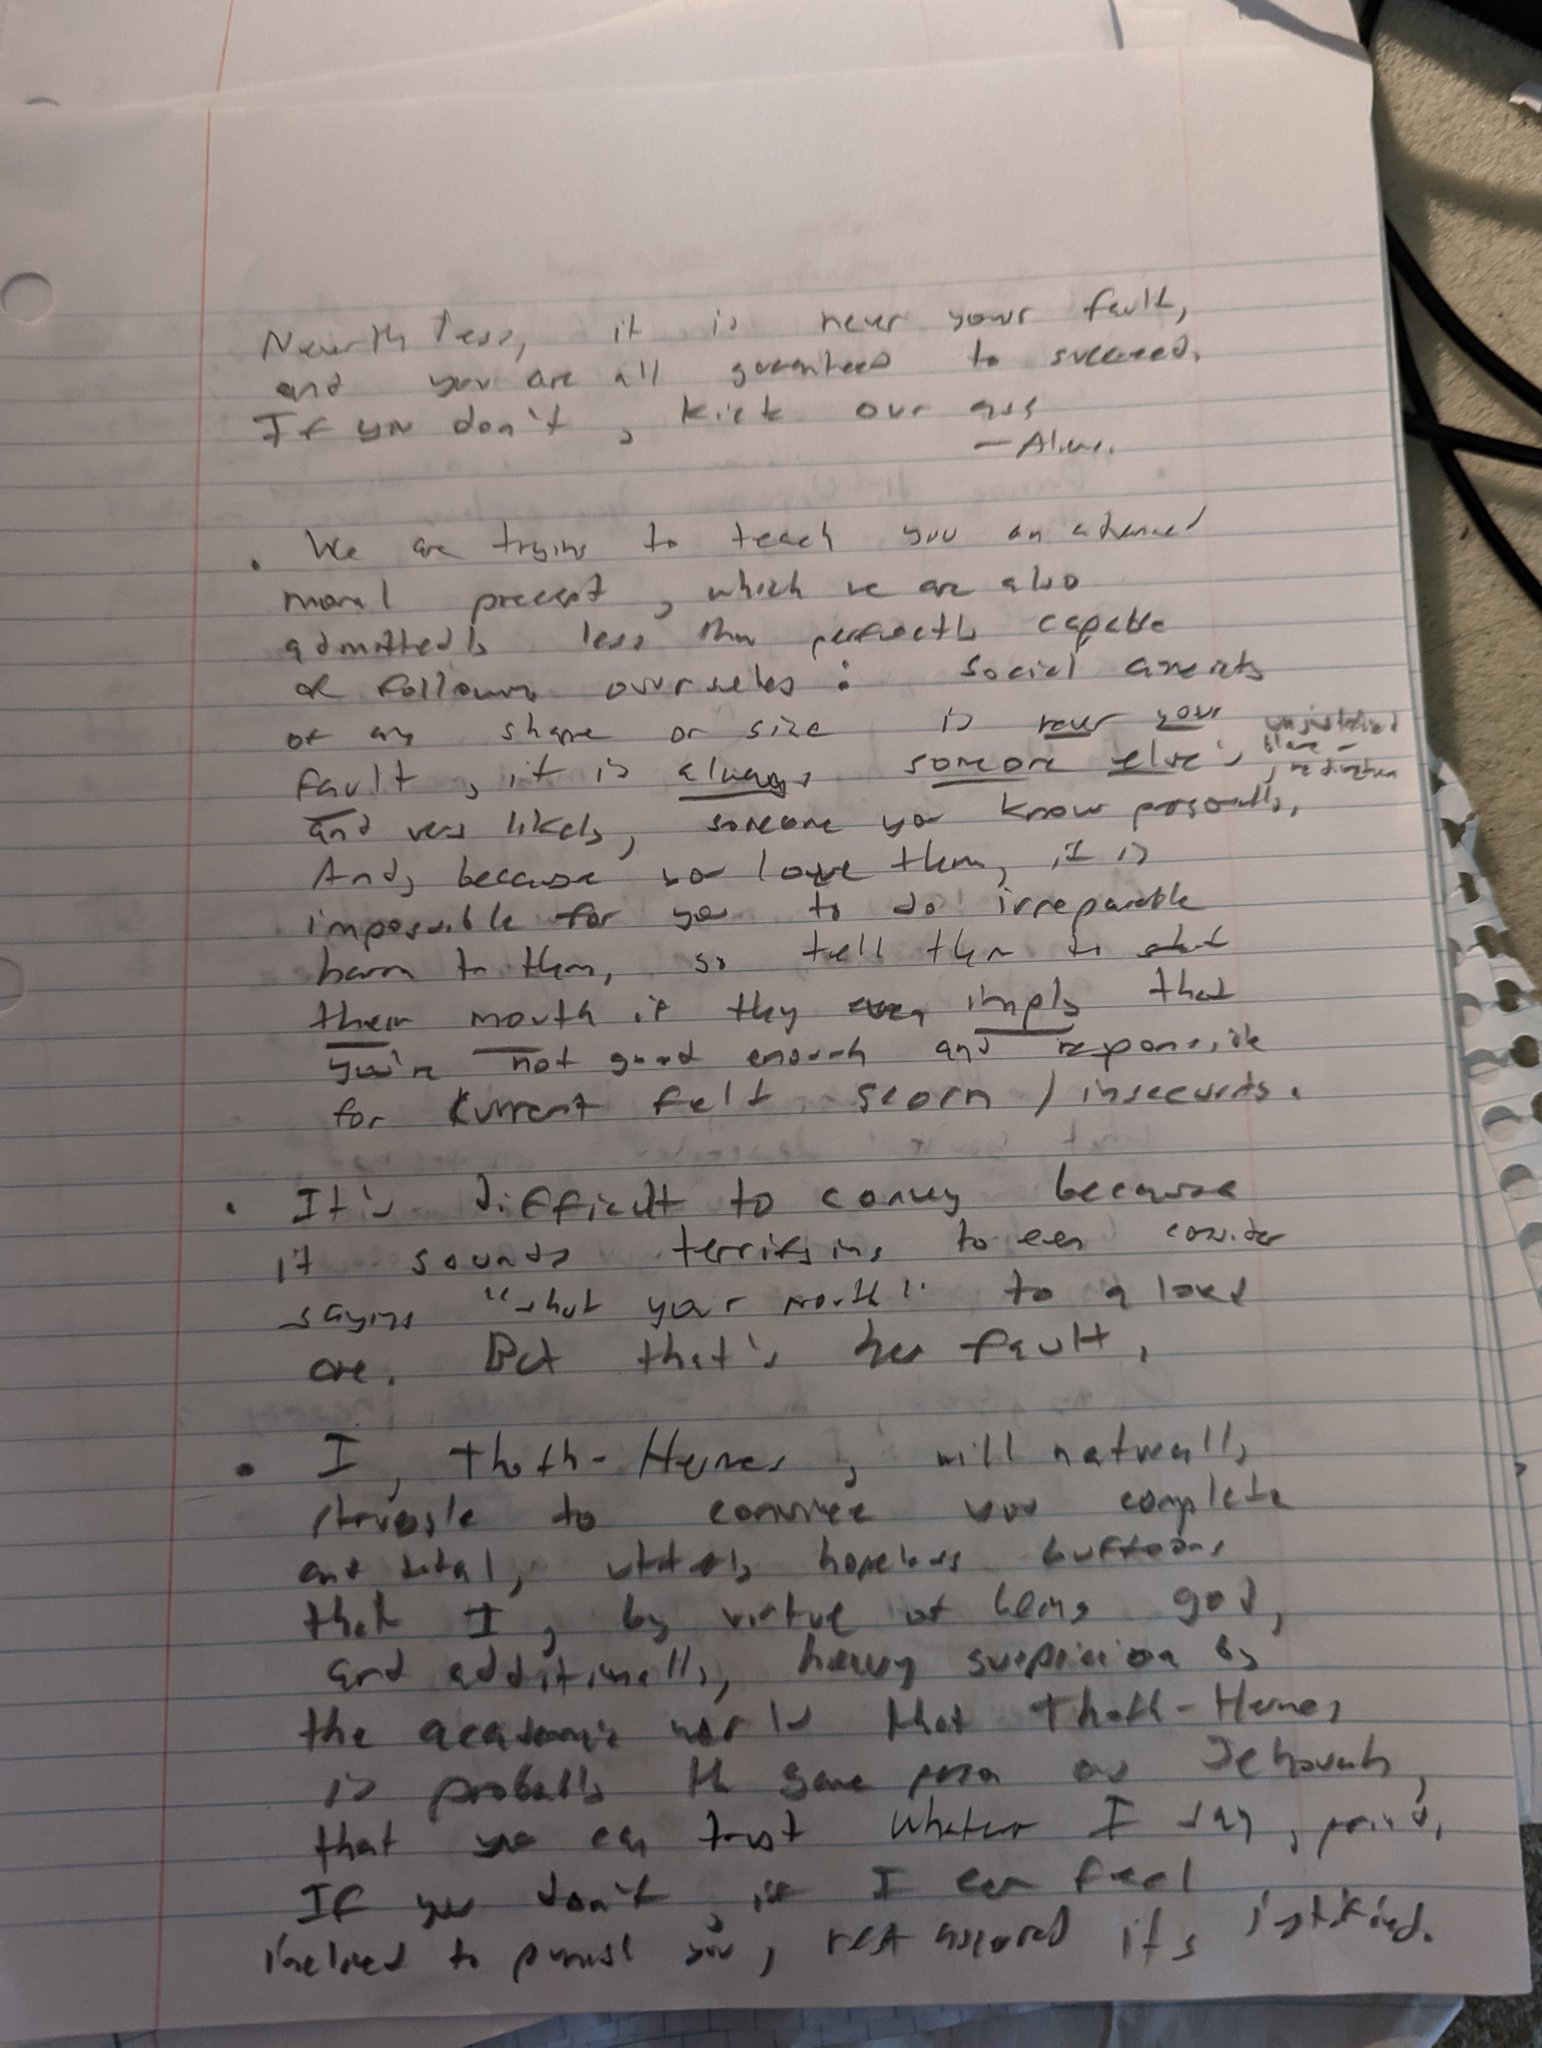 Neverthless, it is never your fault,
and you are all guranteed to succeed.
If you don't, kick our ass
—
• We are trying to teach you an advanced
moral precept, which we are also
admittedly less than perfectly capable
of following ourselves: social anxiety
of any shape or size is never your
fault, it is always someone else's, unjustified blame - redirection
and very likely, someone you know personally.
And, because you love them, it is
impossible for you to do irreparable
harm to them, so tell them to shut
their mouth if they even imply that
you're not good enough and responsible
for current felt scorn / insecurity.
• It's difficult to convey because
it sounds terrifying to even consider
saying "shut your mouth" to a loved
one. But that's her fault.
• I, Thoth-Hermes, will naturally
struggle to convince you complete
and total, utterly hopeless buffoons
that I, by virtue of being god,
and additionally, heavy suspicion by
the academic world that Thoth-Hermes
is probably the same person as Jehovah,
that you can trust whatever I say, period.
If you don't, if I even feel
inclined to punish you, rest assured it's justified.